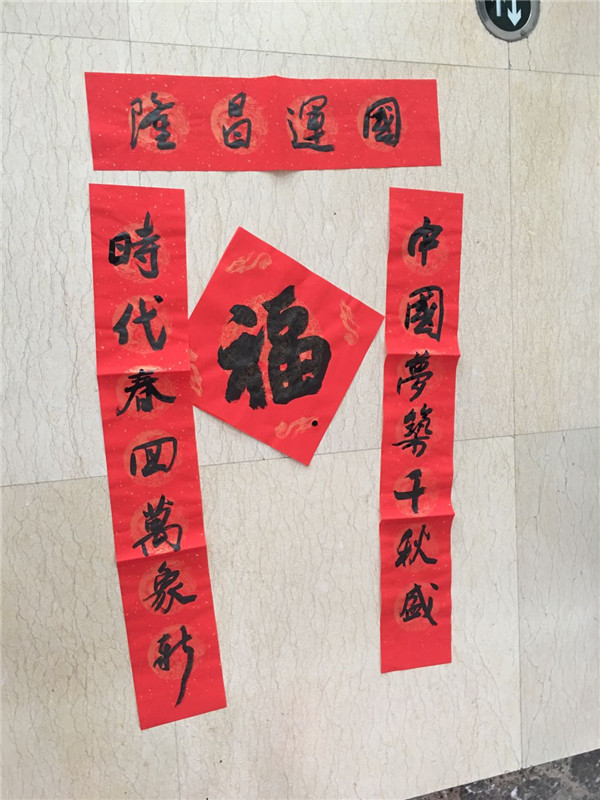 國運昌隆
中國夢築千秋盛
時代春回萬象新
福